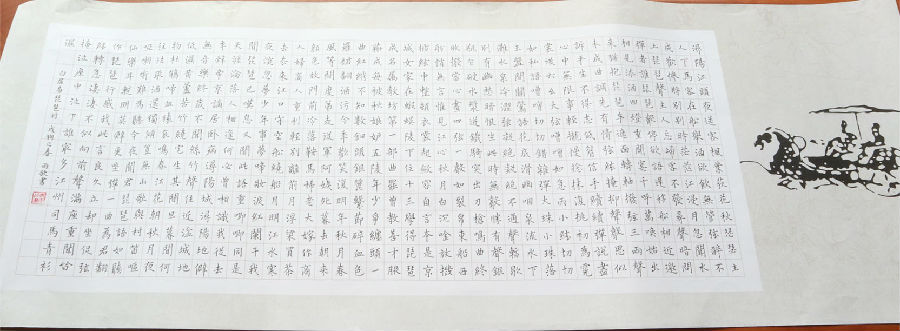 潯陽江頭夜送客楓葉荻花秋瑟瑟主
人下馬客在船舉酒欲飲無管弦醉不
成歡慘將別別時茫茫江浸月忽聞水
上琵琶聲主人忘歸客不發尋聲暗問
彈者誰琵琶聲停欲語遲移船相近邀
相見添酒回燈重開宴千呼萬喚始出
來猶抱琵琶半遮面轉軸撥弦三兩聲
未成曲調先有情弦弦掩抑聲聲思似
訴平生不得志低眉信手續續彈說盡
心中無限事輕攏慢撚抹復挑初為霓
裳後六幺大弦嘈嘈如急雨小弦切切
如私語嘈嘈切切錯雜彈大珠小珠落
玉盤間關鶯語花底滑幽咽泉流冰下
難冰泉冷澀弦凝絕凝絕不通聲暫歇
別有幽愁暗恨生此時無聲勝有聲銀
瓶乍破水漿迸鐵騎突出刀槍鳴曲終
收撥當心畫四弦一聲如裂帛東船西
舫悄無言唯見江心秋月白沉吟放撥
插弦中整頓衣裳起斂容自言本是京
城女家在蝦蟆陵下住十三學得琵琶
成名屬教坊第一部曲罷曾教善才服
妝成每被秋娘妒五陵年少爭纏頭一
曲紅綃不知數鈿頭銀篦擊節碎血色
羅裙翻酒污今年歡笑復明年秋月春
風等閑度弟走從軍阿姨死暮去朝來
顏色故門前冷落鞍馬稀老大嫁作商
人婦商人重利輕別離前月浮梁買茶
去去來江口守空船繞船月明江水寒
夜深忽夢少年事夢啼妝淚紅闌干我
聞琵琶已嘆息又聞此語重唧唧同是
天涯淪落人相逢何必曾相識我從去
年辭帝京謫居臥病潯陽城潯陽地僻
無音樂終歲不聞絲竹聲住近湓城地
低濕黃蘆苦竹繞宅生其間旦暮聞何
物杜鵑啼血猿哀鳴春江花朝秋月夜
往往取酒還獨傾豈無山歌與村笛嘔
啞嘲哳難為聽今夜聞君琵琶語如聽
仙樂耳暫明莫辭更坐彈一曲為君翻
作琵琶行感我此言良久立卻坐促弦
弦轉急淒淒不似向前聲滿座重聞皆
掩泣座中泣下誰最多江州司馬青衫
濕
白居易琵琶行 戊戌之春